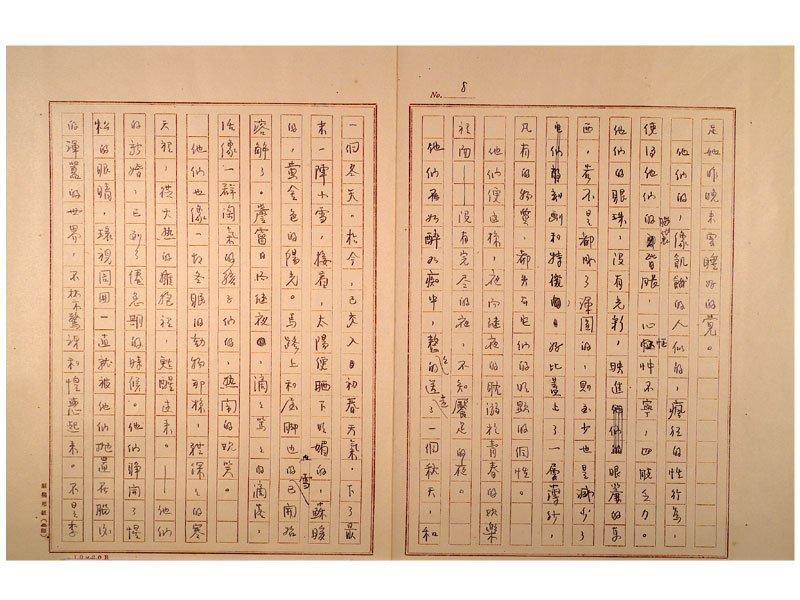 No. 8
足她昨晚未曾睡好的覺。
他們的，像飢餓的人似的，瘋狂的性行為，
使得他們的腦昏眼脹，心怔忡不寧，四肢乏力。
他們的眼珠，沒有光彩，映進眼簾的東
西，若不是都成了渾圓的，則至少也是減少了
它們的刻劃和特徵，好比蓋上了一層薄紗，
凡有的物質，都失去它們的明顯的個性。
他們便這樣，夜以繼夜的耽溺於青春的快樂
裡面——沒有完尽的夜，不知饜足的夜。
他們在如醉如痴中，整整的送走了一個秋天，和
一個冬天。於今，已交入初春天氣。下了最
末一陣小雪，接着，太陽便晒下明媚的，蘇暖
的，黃金色的陽光。馬路上和屋脚也的雪已開始
溶解了。簷霤日以繼夜，滴滴篤篤的滴落，
活像一群淘氣的孩子們的，熱鬧的玩笑。
他們也像一切冬眠的動物那樣，從深深的寒
天裡，從火熱的擁抱裡，甦醒過來。——他們
的新婚，已到了優怠期的時候。他們睜開了惺
忪的眼睛，環視周圍一直就被他們拋置在腦後
的渾囂的世界，不禁驚訝和惶惑起來。不是季